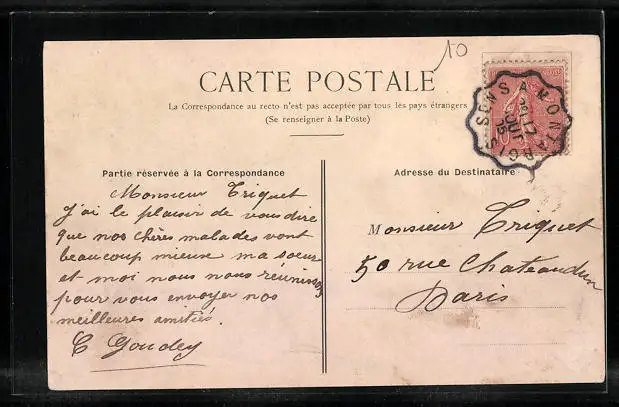 10
CARTE POSTALE
La Correspondance au recto n'est pas acceptée par tous les pays étrangers
(Se renseigner à la Poste)
SENS A MONTARGIS
17
AOUT
Partie réservée à la Correspondance
Monsieur Triquet
J'ai le plaisir de vous dire
que nos chères malades vont
beaucoup mieux ma soeur
et moi nous nous réunissons
pour vous envoyer nos
meilleures amitiés.
C Goudey
Adresse du Destinataire
Monsieur Triquet
50 rue Chateaudun
Paris